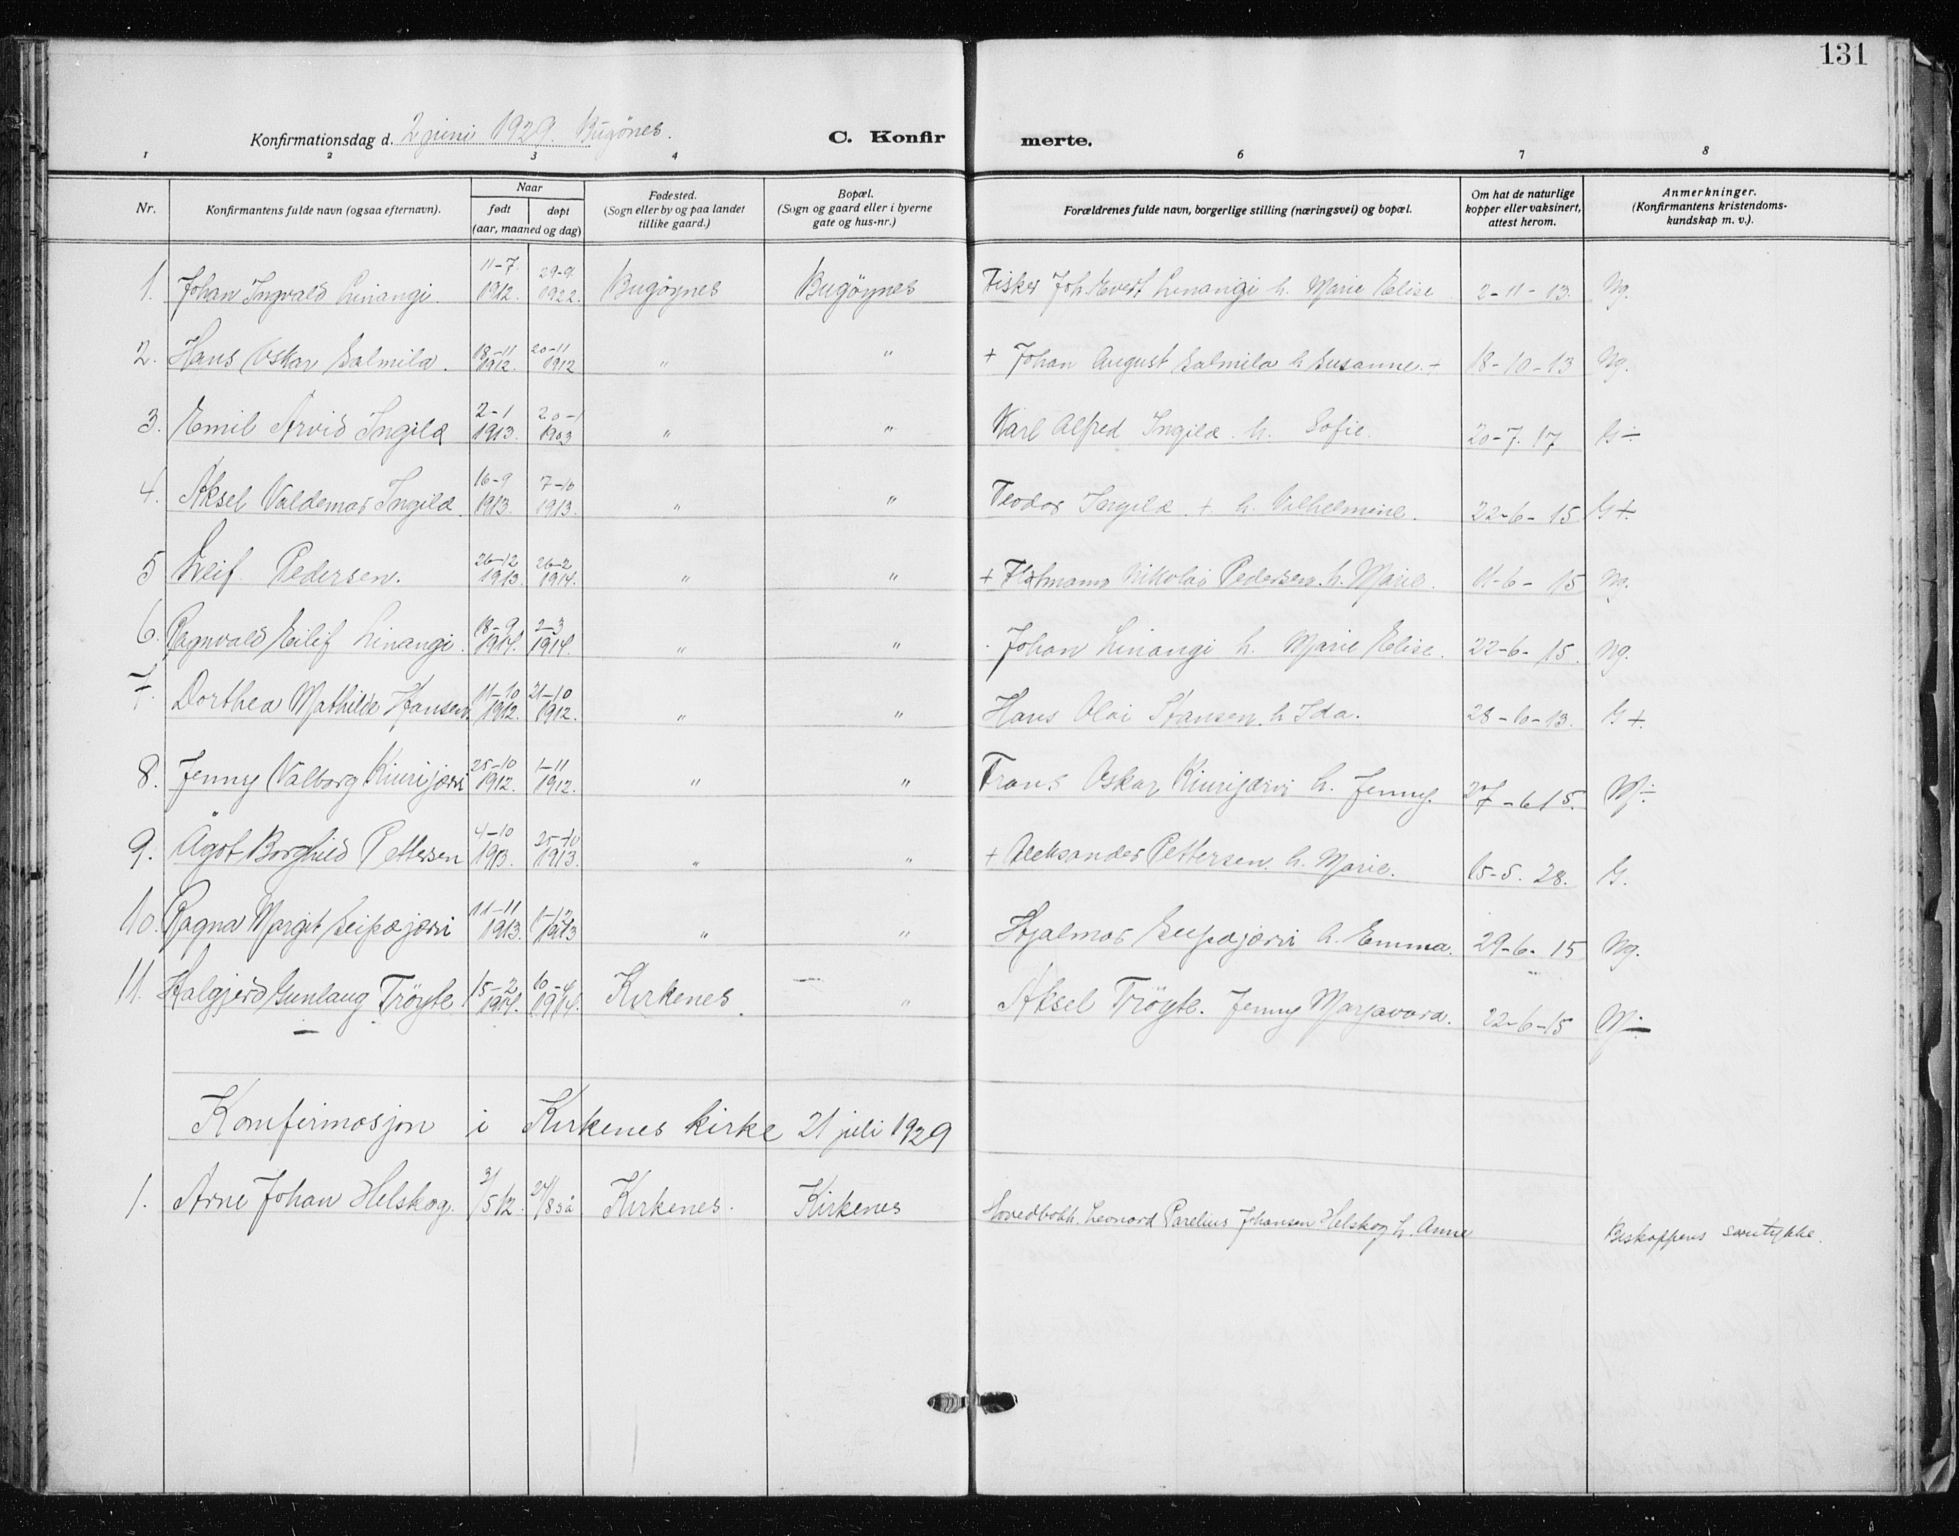 131
Konfirmationsdag d. 2 juni 1929. Bugönes. C. Konfir merte.
1 2 3 4 6 7 8
Nr. Konfirmantens fulde navn (ogsaa efternavn). Naar født døpt (aar, maaned og dag) Fødested. (Sogn eller by og paa landet tillike gaard.) Bopæl. (Sogn og gaard eller i byerne gate og hus-nr.) Forældrenes fulde navn, borgerlige stilling (næringsvei) og bopæl. Om hat de naturlige kopper eller vaksinert, attest herom. Anmerkninger. (Konfirmantens kristendoms-kundskap m. v.).
1. Johan Ingvald Linangi. 11-7 1912. 29-9 1922. Bugöynes Bugöynes Fisker Joh. Evert Linangi h. Marie Elise 2-11-13. Ng.
2. Hans Oskar Salmila. 18-11 1912. 20-11 1912 " " + Johan August Salmila h. Susanne + 18-10-13 Ng.
3. Emil Arvid Ingilæ 2-1 1913. 20-1 1903 " " Karl Alfred Ingilæ h. Sofie. 20-7. 17 G÷
4. Aksel Valdemar Ingilæ. 16-9 1913. 7-10 1913. " " Teodor Ingilæ + h. Vilhelmine. 22-6-15 G+.
5 Leif Pedersen. 26-12 1913. 26-2 1914. " " + Nikolai Pedersen h. Marie. 11-6-15 Ng.
6. Ragnvald Eilif Linangi. 18-9 1914. 2-3 1914. " " Johan Linangi h. Marie Elise. 22-6-15. Ng.
7. Dorthea Mathilde Hansen. 11-10 1912. 21-10 1912. " " Hans Olai Hansen h. Ida. 28-10-13. G+.
8. Jenny Valborg Kiurijærvi 25-10 1912. 1-11 1912. " " Frans Oskar Kiurijærvi h. Jenny. 27-6 15. Mj÷
9. Ågot Borghild Pettersen 4-10 1913. 25-10 1913. " " + Aleksander Pettersen. h. Marie. 15-5. 28. G.
10. Ragna Margit Seipæjærvi 11-11 1913. 1-12 1913 " " Hjalmar Seipæjærvi h. Emma. 29-6-15 Ng.
11. Halgjerd Gunlaug Tröyte 15-2 1914. 10-4 1914. Kirkenes. " Aksel Tröyte. Jenny Marjavara. 22-6-15 Mj÷
Konfirmasjon i Kirkenes kirke 21 juli 1929
1. Arne Johan Helskog. 3/5 12. 24/8 så Kirkenes. Kirkenes Hovedbokh. Leonard Parelius Johansen Helskog h. Anne Biskoppens samtykke.